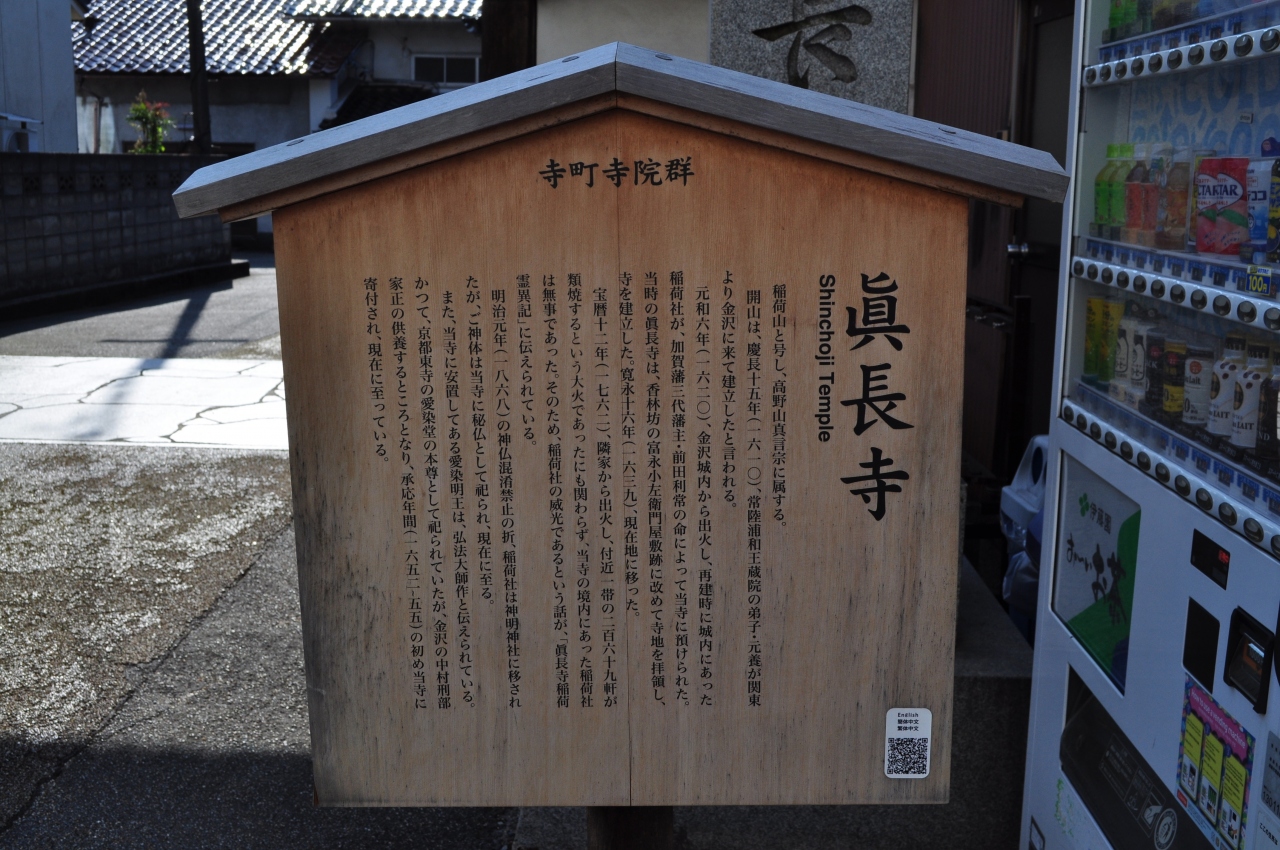 寺町寺院群
眞長寺
Shinchoji Temple
稲荷山と号し、高野山真言宗に属する。
開山は、慶長十五年(一六一〇)、常陸浦和王蔵院の弟子・元養が関東
より金沢に来て建立したと言われる。
元和六年(一六二〇)、金沢城内から出火し、再建時に城内にあった
稲荷社が、加賀藩三代藩主・前田利常の命によって当寺に預けられた。
当時の眞長寺は、香林坊の富永小左衛門屋敷跡に改めて寺地を拝領し、
寺を建立した。寛永十六年(一六三九)、現在地に移った。
宝暦十二年(一七六二)、隣家から出火し、付近一帯の二百六十九軒が
類焼するという大火であったにも関わらず、当寺の境内にあった稲荷社
は無事であった。そのため、稲荷社の威光であるという話が、「眞長寺稲荷
霊異記」に伝えられている。
明治元年(一八六八)の神仏混淆禁止の折、稲荷社は神明神社に移され
たが、ご神体は当寺に秘仏として祀られ、現在に至る。
また、当寺に安置してある愛染明王は、弘法大師作と伝えられている。
かつて、京都東寺の愛染堂の本尊として祀られていたが、金沢の中村刑部
家正の供養するところとなり、承応年間(一六五二~五五)の初め当寺に
寄付され、現在に至っている。
English
簡体中文
繁体中文
長
NECTAR
100円
伊藤園
お〜いお茶